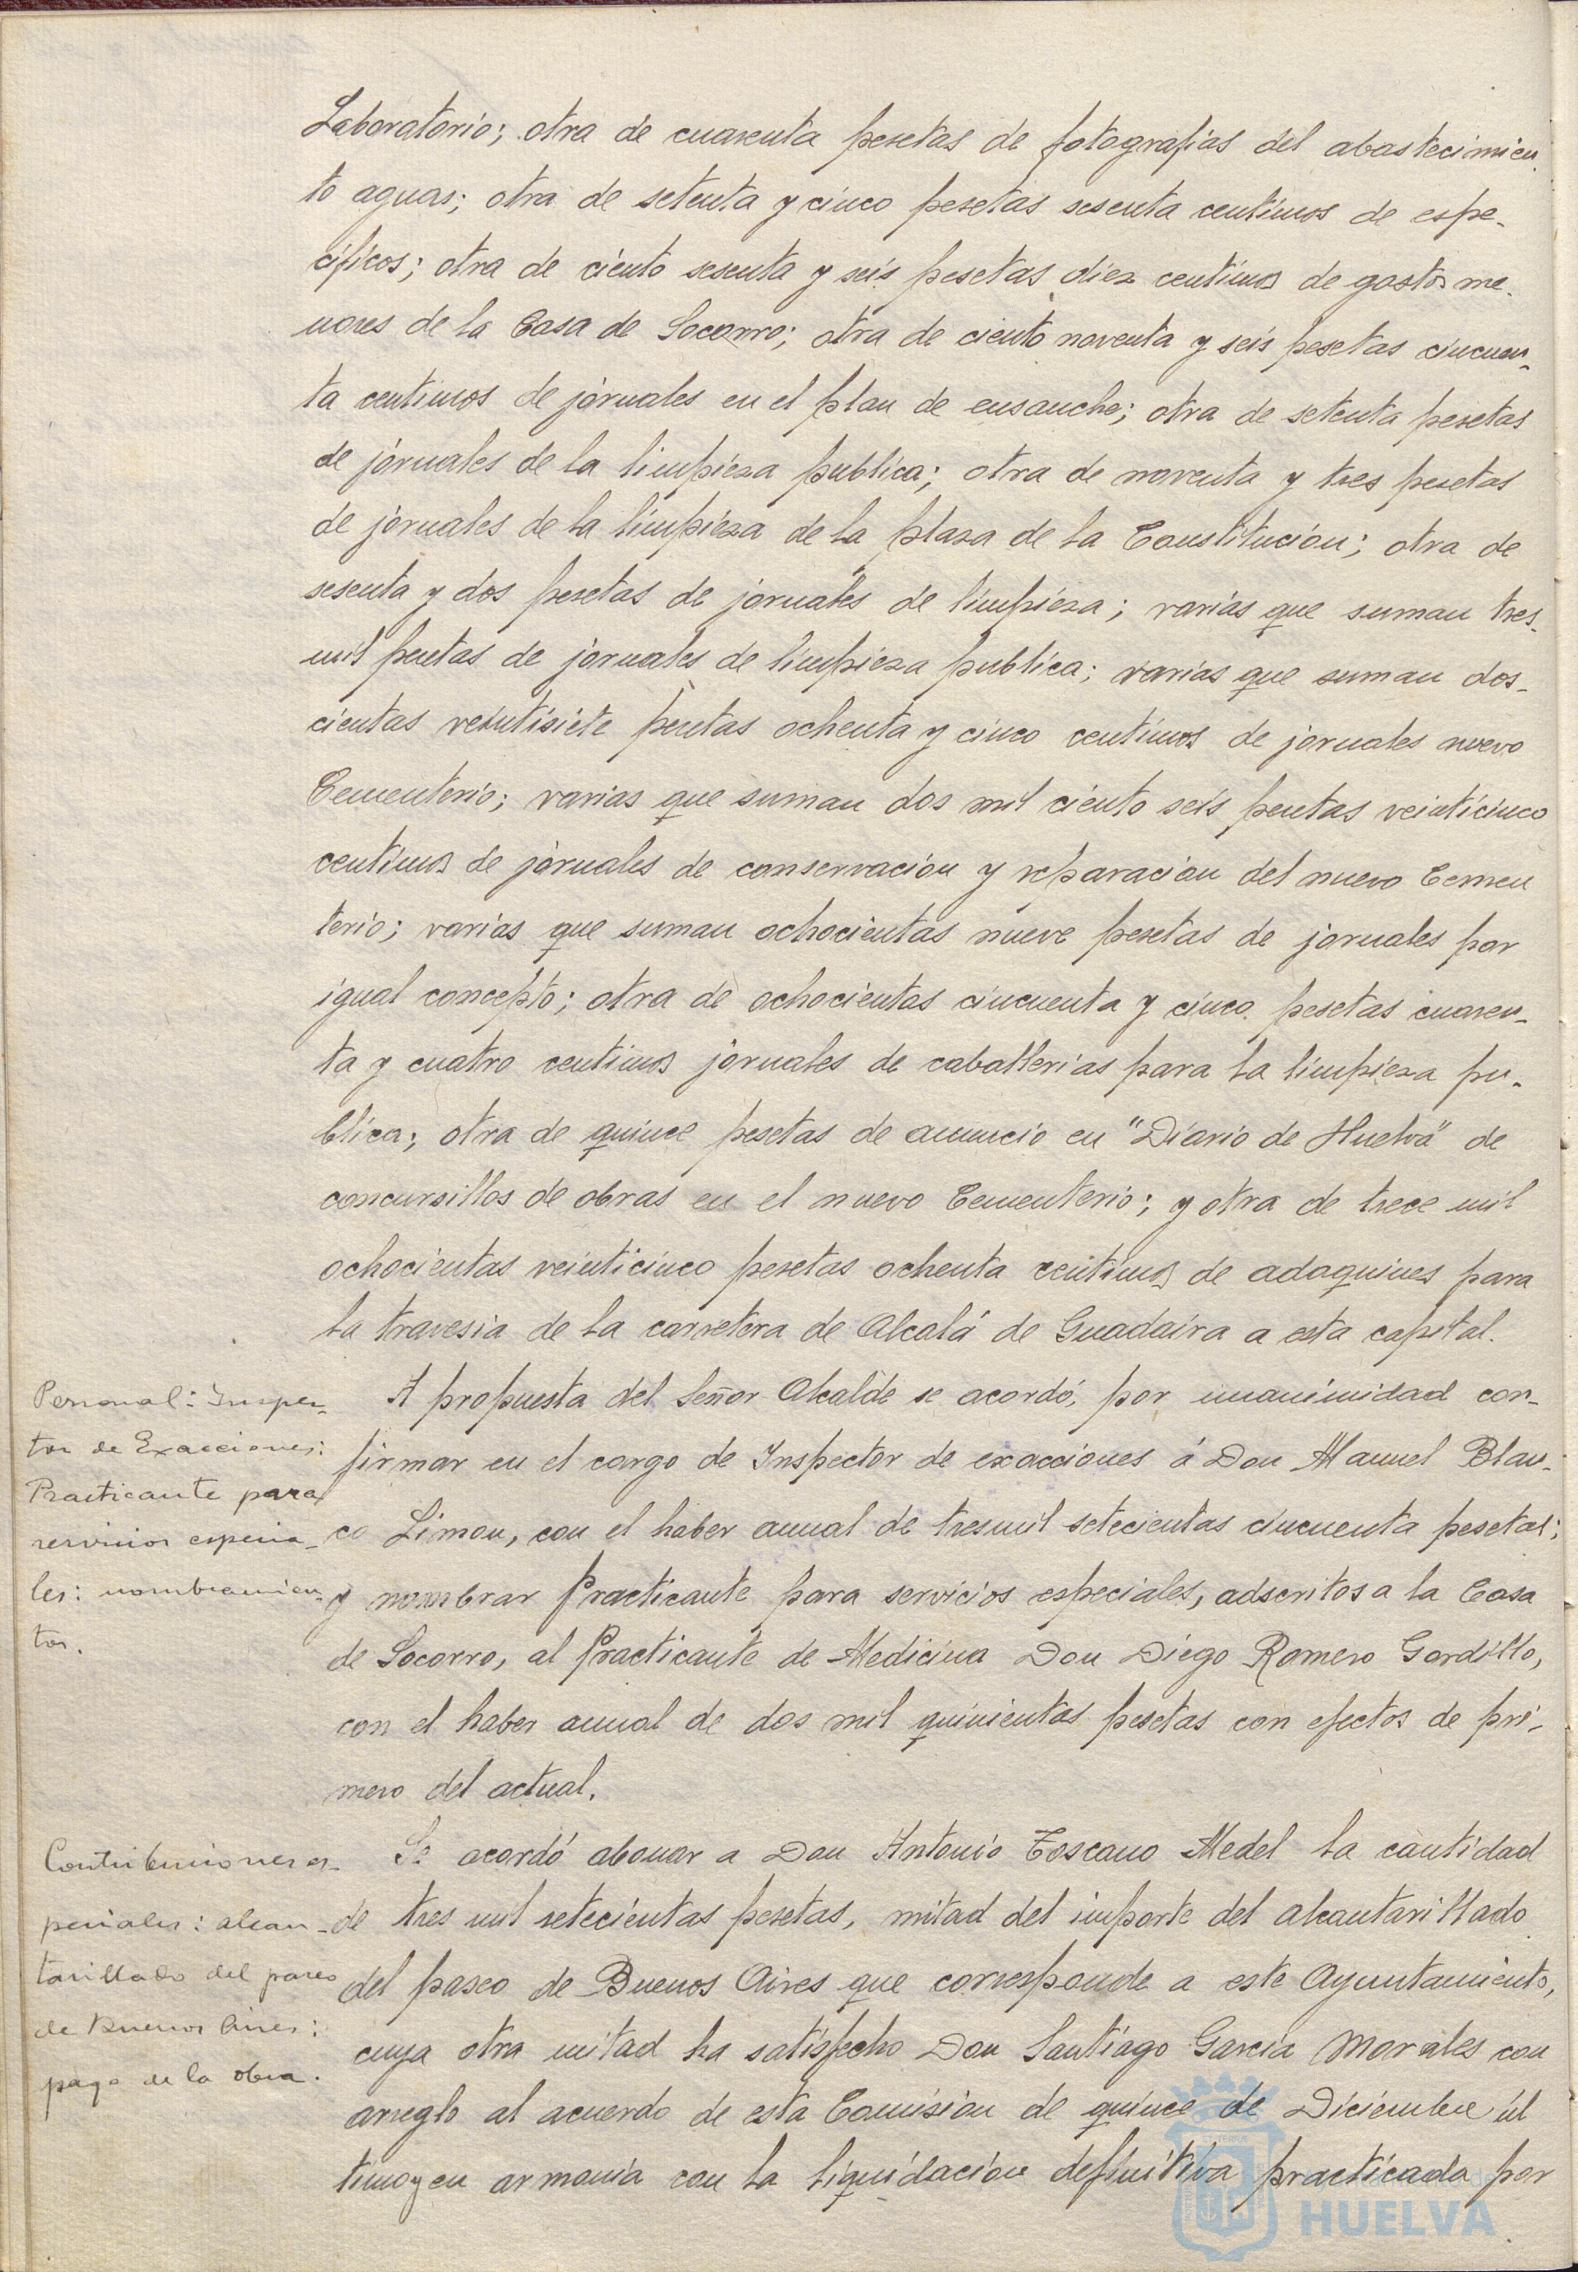 Laboratorio; otra de cuarenta pesetas de fotografias del abastecimien
to aguas; otra de setenta y cinco pesetas sesenta centimos de espe-
cificos; otra de ciento sesenta y seis pesetas diez centimos de gastos me-
nores de la Casa de Socorro; otra de ciento noventa y seis pesetas cincuen-
ta centimos de jornales en el plan de ensanche; otra de setenta pesetas
de jornales de la limpieza publica; otra de noventa y tres pesetas
de jornales de la limpieza de la plaza de la Constitucion; otra de
sesenta y dos pesetas de jornales de limpieza; varias que suman tres-
mil pesetas de jornales de limpieza publica; varias que suman dos-
cientas veintisiete pesetas ochenta y cinco centimos de jornales nuevo
Cementerio; varias que suman dos mil ciento seis pesetas veinticinco
centimos de jornales de conservacion y reparacion del nuevo Cemen
terio; varias que suman ochocientas nueve pesetas de jornales por
igual concepto; otra de ochocientas cincuenta y cinco pesetas cuaren-
ta y cuatro centimos jornales de caballerias para la limpieza pu-
blica; otra de quince pesetas de anuncio en "Diario de Huelva" de
concursillos de obras en el nuevo Cementerio; y otra de trece mil
ochocientas veinticinco pesetas ochenta centimos de adoquines para
la travesia de la carretera de Alcalá de Guadaira a esta capital.
Personal: Inspec-
tor de Exacciones:
Practicante para
servicios especia-
les: nombramien-
tos.
A propuesta del Señor Alcalde se acordó, por unanimidad con-
firmar en el cargo de Inspector de exacciones á Don Manuel Blan-
co Limon, con el haber anual de tresmil setecientas cincuenta pesetas;
y nombrar Practicante para servicios especiales, adscritos a la Casa
de Socorro, al Practicante de Medicina Don Diego Romero Gordillo,
con el haber anual de dos mil quinientas pesetas con efectos de pri-
mero del actual.
Contribuciones es-
peciales: alcan-
tarillado del paseo
de Buenos Aires:
pago de la obra.
Se acordó abonar a Don Antonio Toscano Medel la cantidad
de tres mil setecientas pesetas, mitad del importe del alcantarillado
del paseo de Buenos Aires que corresponde a este Ayuntamiento,
cuya otra mitad ha satisfecho Don Santiago Garcia Morales con
arreglo al acuerdo de esta Comision de quince de Diciembre úl
timo y en armonia con la liquidacion definitiva practicada por
HUELVA